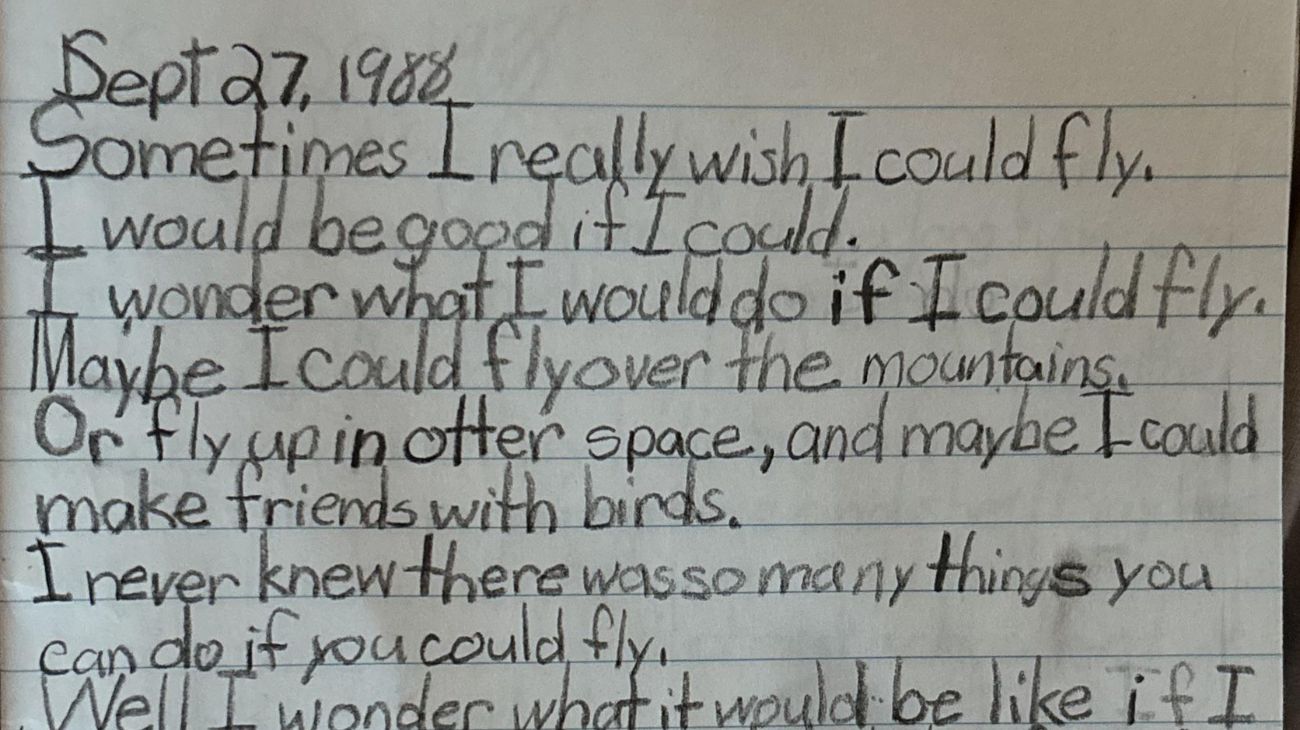 Sept 27, 1988
Sometimes I really wish I could fly.
I would be good if I could.
I wonder what I would do if I could fly.
Maybe I could fly over the mountains.
Or fly up in otter space, and maybe I could
make friends with birds.
I never knew there was so many things you
can do if you could fly.
Well I wonder what it would be like if I